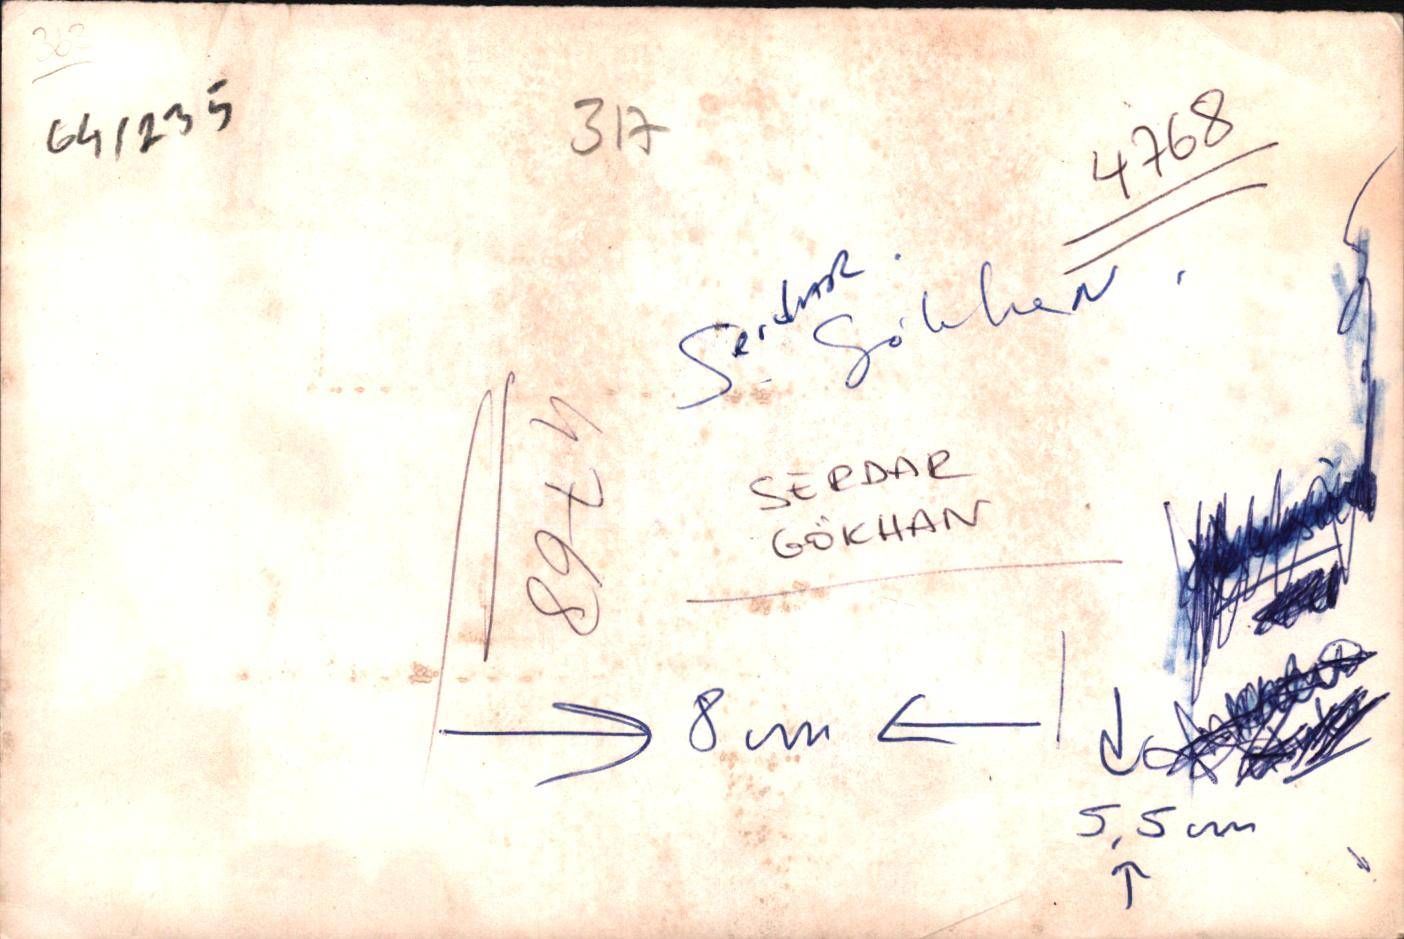 363
64/235
317
4768
Serdar.
Gökhan.
4768
SERDAR
GÖKHAN
8 cm
5,5 cm